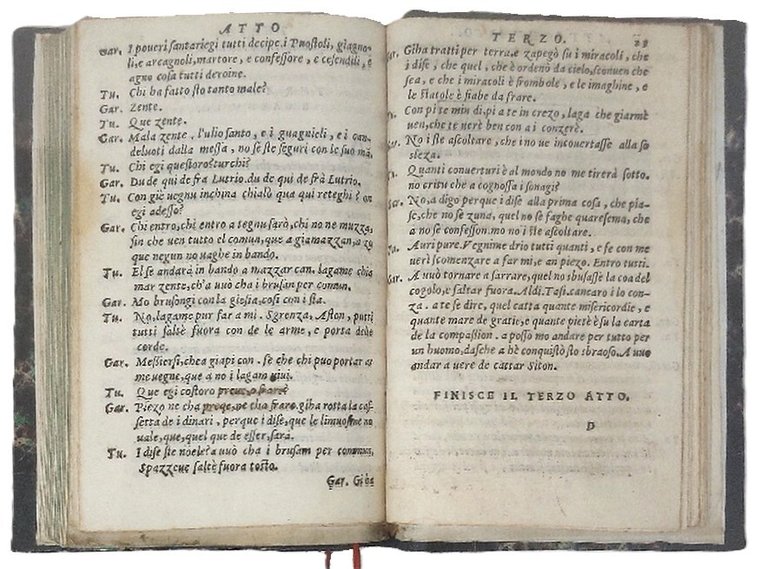 ATTO
Gar. I poueri santariegi tutti decipe. i Puostoli, giagno-
li, e arcagnoli, martore, e confessore, e cesendili, e
agno cosa tutti deroine.
Tu. Chi ha fatto sto tanto male?
Gar. Zente.
Tu. Que zente.
Gar. Mala zente. l'ulio santo, e i guagnieli, e i can-
deluoti dalla messa, no se ste seguri con le suo mã.
Tu. Chi egi questoro? turchi?
Gar. Du de qui de fra Lutrio. du de qui de frà Lutrio.
Tu. Con giè uegnu inchina chialò qua qui reteghi? on
egi adesso?
Gar. Chi entro, chi entro a tegnu sarò, chi no ne muzza,
sin che uen tutto el comun, que a gi amazzan, a zo
que negun no uaghe in bando.
Tu. El se andarà in bando a mazzar can. lagame chia
mar zente, ch'a uuò cha i brusan per comun.
Gar. Mo brusongi con la giesia, cosi con i sta.
Tu. No, lagame pur far a mi. Sgrenza, Aston, putti
tutti saltè fuora con de le arme, e porta delle
corde.
Gar. Messiersi, che a giapi con. se che chi puo portar ar
me uegne, que a no i lagam uiui.
Tu. Que egi costoro preue, o frare?
Gar. Piezo ne cha preue, ne cha frare. giha rotta la cas-
setta de i dinari, perque i dise, que le limuosine no
uale, que, quel que de esser, sarà.
Tu. I dise ste noele? a uuò cha i brusam per comun,
spazzeue saltè fuora tosto.
Gar. Giha
TERZO. 29
Gar. Giha tratti per terra, e zapegò su i miracoli, che
i dise, che quel, che è ordenò da cielo, sconuen che
sea, e che i miracoli è frombole, e le imaghine, e
le statole è fiabe da frare.
Con pi te min di, pi a te in crezo, laga che giarmè
uen, che te uerè ben con a i conzerè.
Gar. No i ste ascoltare, che i no ue incouertasse alla so
slezа.
Quanti conuerturi è al mondo no me tirerà sotto.
no critu che a cognossa i sonagi?
No, a digo perque i dise alla prima cosa, che pia-
se, che no se zuna, quel no se faghe quaresema, che
a no se confesson. mo no i ste ascoltare.
Auri pure. Vegnime drio tutti quanti, e fe con me
uerì scomenzare a far mi, e an piezo. Entro tutti.
Gar. A uuò tornare a sarrare, quel no sbusasse la coa del
cogolo, e saltar fuora. Aldi. Tasi. cantaro i lo con-
za. a te se dire, quel catta quante misericordie, e
quante mare de gratie, e quante pietè è su la carta
de la compassion. a posso mo andare per tutto per
un homo, dasche a hè conquistò sto sbraoso. A uuo
andar a uere de cattar Siton.
FINISCE IL TERZO ATTO.
D